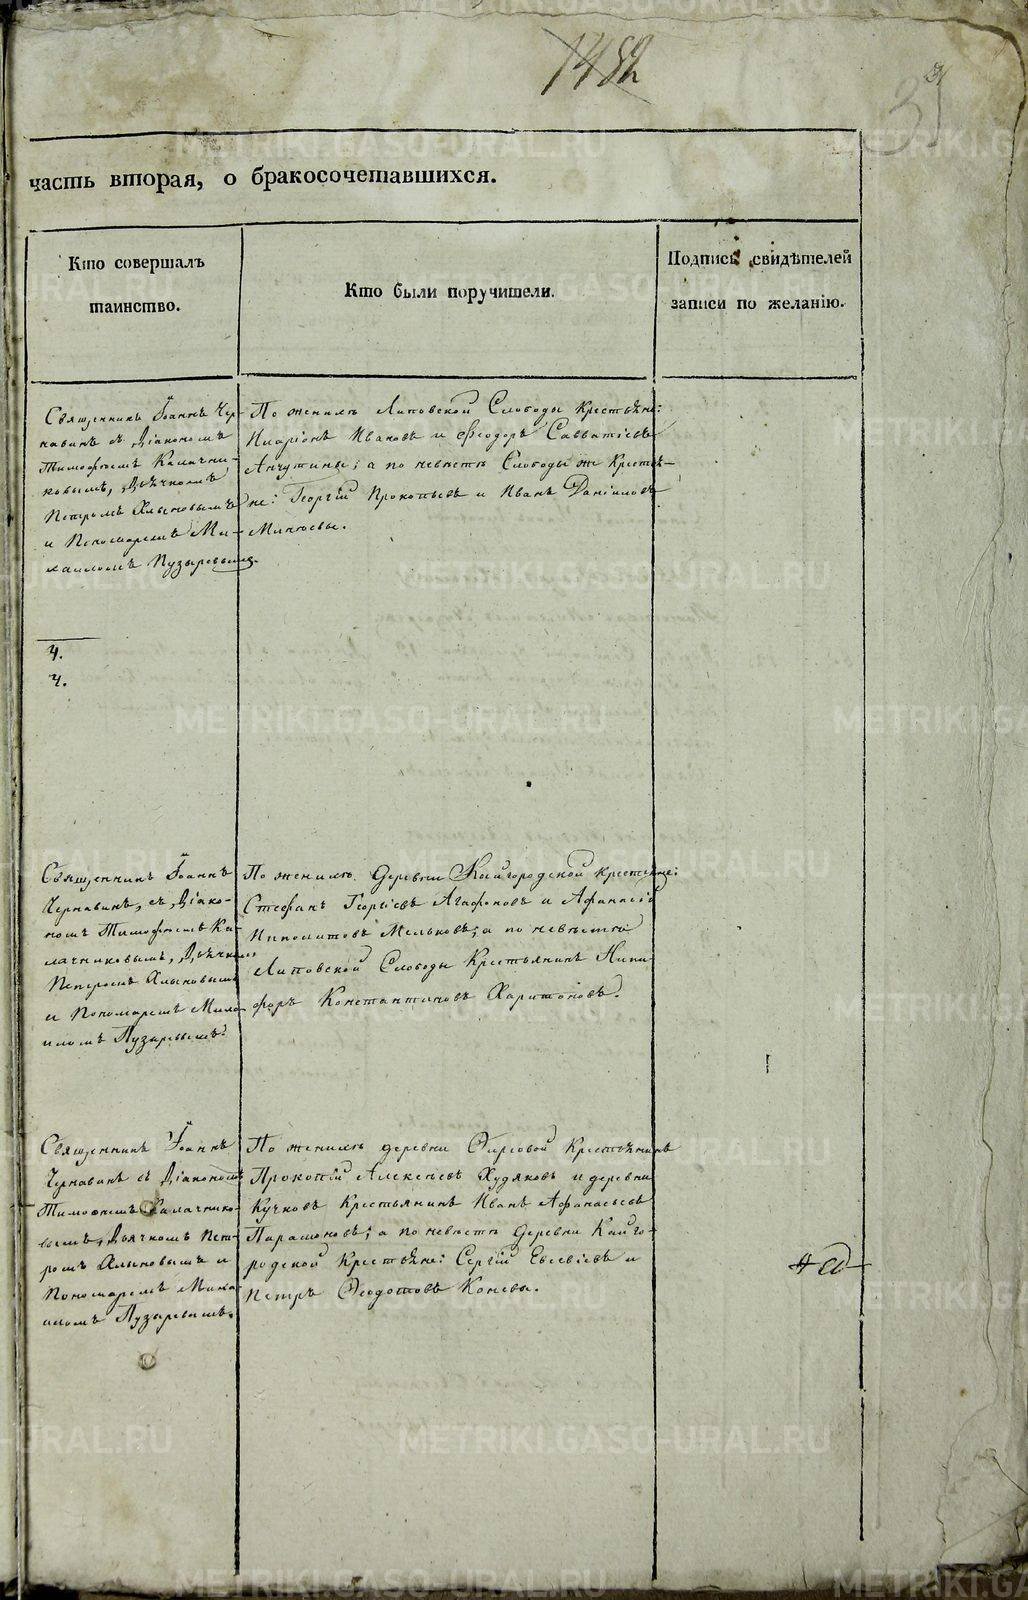 1482
31
часть вторая, о бракосочетавшихся.
Кто совершалъ
таинство.
Кто были поручители.
Подпись свидѣтелей
записи по желанію.
Священникъ Іоаннъ Чер-
навинъ съ Діакономъ
Тимофеемъ Калачни-
ковымъ, Дьячкомъ
Петромъ Хлыновымъ
и Пономаремъ Ми-
хаиломъ Пузыревымъ.
4.
4.
По женихѣ Липовской Слободы Крестьяне:
Иларіонъ Ивановъ и Феодоръ Савватіевъ
Анчутины; а по невѣстѣ Слободы же Крестья-
не: Георгій Прокопьевъ и Иванъ Даніиловъ
Минѣевы.
Священникъ Іоаннъ
Чернавинъ, съ Діако-
номъ Тимофеемъ Ка-
лачниковымъ, Дьячком
Петромъ Хлыновымъ
и Пономаремъ Миха
иломъ Пузыревымъ.
По женихѣ Деревни Кайгородской крестьяне:
Стефанъ Георгіевъ Агафоновъ и Афанасій
Иполитовъ Мельковъ; а по невѣстѣ
Липовской Слободы Крестьянинъ Ники
форъ Константиновъ Харитоновъ.
Священникъ Іоаннъ
Чернавинъ съ Діакономъ
Тимофеемъ Калачнико-
вымъ, Дьячкомъ Пет-
ромъ Хлыновымъ и
Пономаремъ Миха
иломъ Пузыревымъ.
По женихѣ деревни Крестьянинъ
Прокопій Алексѣевъ Худяковъ и деревни
Кучковъ Крестьянинъ Иванъ Афанасьевъ
Парамоновъ; а по невѣстѣ Деревни Кайго-
родской Крестьяне: Сергій Евсевіевъ и
Петръ Феодотовъ Коневы.
METRIKI.GASO-URAL.RU